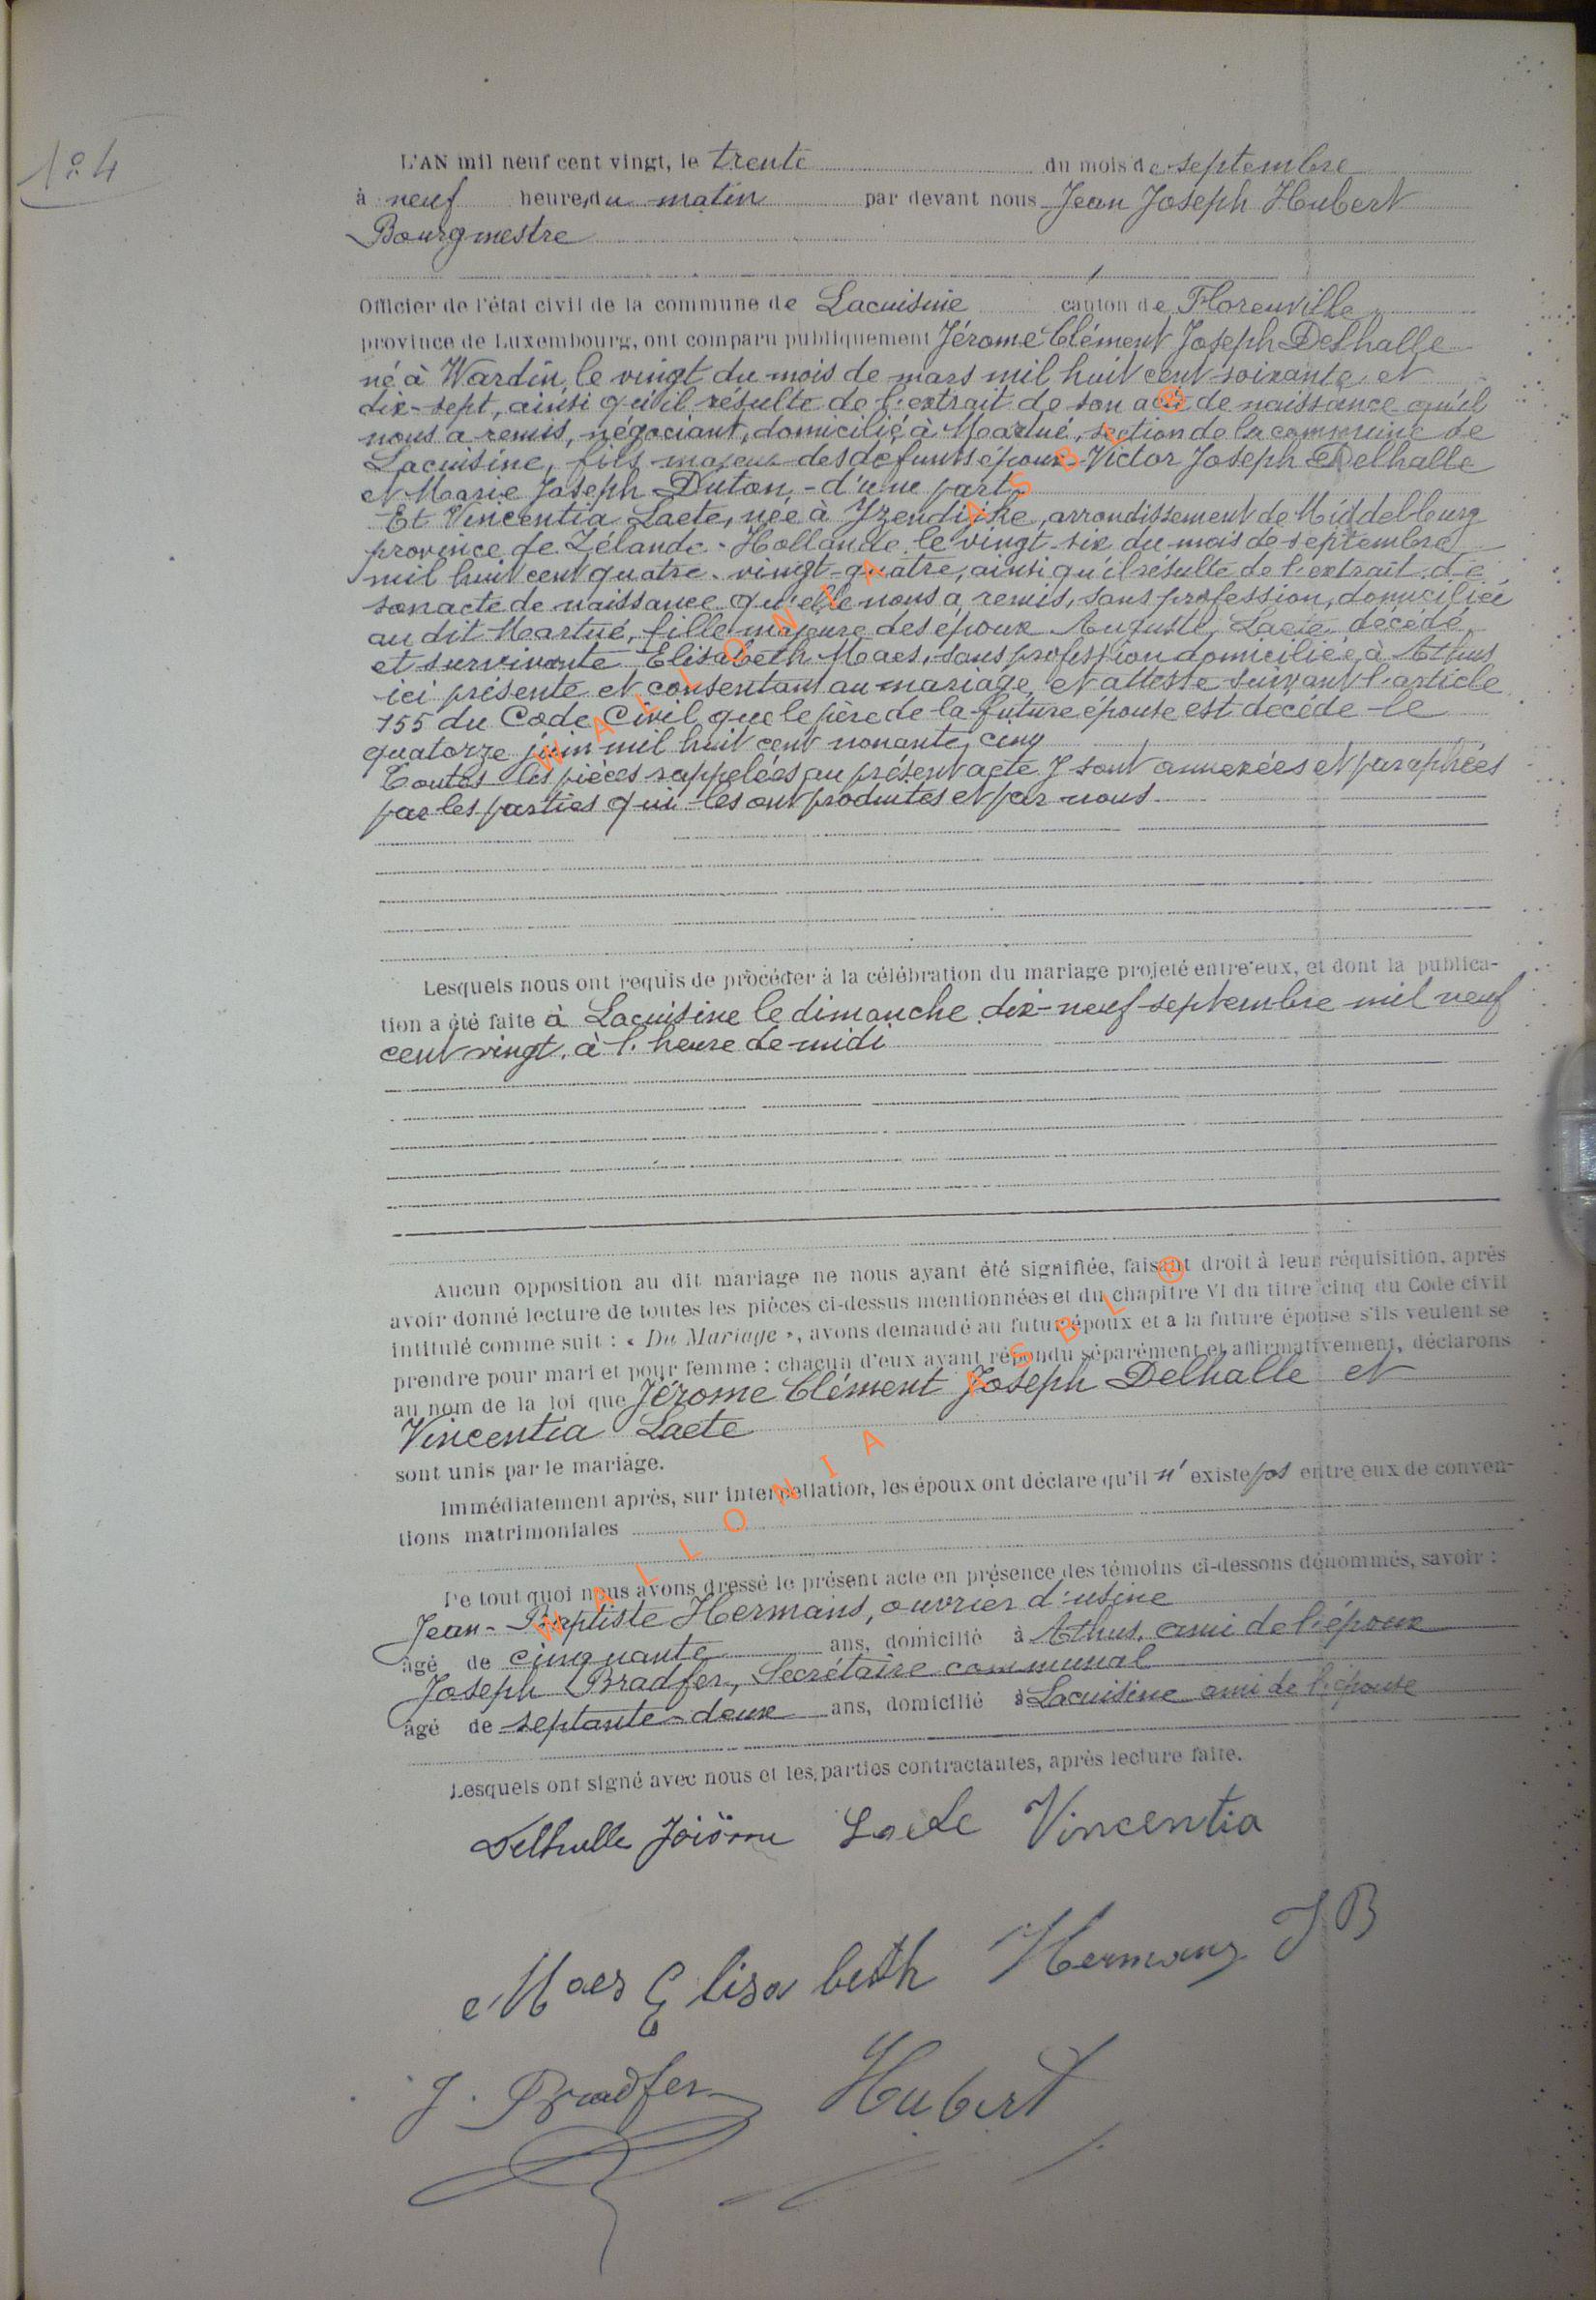 N° 4
L'AN mil neuf cent vingt, le trente du mois de septembre
à neuf heures du matin par devant nous Jean Joseph Hubert
Bourgmestre
Officier de l'état civil de la commune de Lacuisine canton de Florenville
province de Luxembourg, ont comparu publiquement Jérome Clément Joseph Delhalle
né à Wardin, le vingt du mois de mars mil huit cent soixante et
dix-sept, ainsi qu'il résulte de l'extrait de son acte de naissance qu'il
nous a remis, négociant, domicilié à Martué, section de la commune de
Lacuisine, fils majeur des défunts époux Victor Joseph Delhalle
et Marie Joseph Duton, - d'une part,
Et Vincentia Laete, née à Yzendijke, arrondissement de Middelburg
province de Zélande - Hollande, le vingt-six du mois de septembre
mil huit cent quatre-vingt-quatre, ainsi qu'il résulte de l'extrait de
son acte de naissance qu'elle nous a remis, sans profession, domiciliée
au dit Martué, fille majeure des époux Auguste Laete, décédé,
et survivante Elisabeth Maes, sans profession domiciliée à Athus
ici présente et consentant au mariage, et atteste suivant l'article
155 du Code Civil que le père de la future épouse est décédé le
quatorze juin mil huit cent nonante, cinq
Toutes les pièces rappelées au présent acte y sont annexées et paraphées
par les parties qui les ont produites et par nous
Lesquels nous ont requis de procéder à la célébration du mariage projeté entre eux, et dont la publica-
tion a été faite à Lacuisine le dimanche dix-neuf septembre mil neuf
cent vingt, à l'heure de midi
Aucun opposition au dit mariage ne nous ayant été signifiée, faisant droit à leur réquisition, après
avoir donné lecture de toutes les pièces ci-dessus mentionnées et du chapitre VI du titre cinq du Code civil
intitulé comme suit : « Du Mariage », avons demandé au futur époux et à la future épouse s'ils veulent se
prendre pour mari et pour femme : chacun d'eux ayant répondu séparément et affirmativement, déclarons
au nom de la loi que Jérome Clément Joseph Delhalle et
Vincentia Laete
sont unis par le mariage.
Immédiatement après, sur interpellation, les époux ont déclaré qu'il n'existe pas entre eux de conven-
tions matrimoniales
De tout quoi nous avons dressé le présent acte en présence des témoins ci-dessons dénommés, savoir :
Jean-Baptiste Hermans, ouvrier d'usine
âgé de cinquante ans, domicilié à Athus, ami de l'époux
Joseph Bradfer, Secrétaire communal
âgé de septante-deux ans, domicilié à Lacuisine ami de l'épouse
Lesquels ont signé avec nous et les parties contractantes, après lecture faite.
Delhalle Jérôme Laete Vincentia
Maes Elisabeth Hermans J B
J. Bradfer Hubert
WALLONIA ASBL ®
WALLONIA ASBL ®